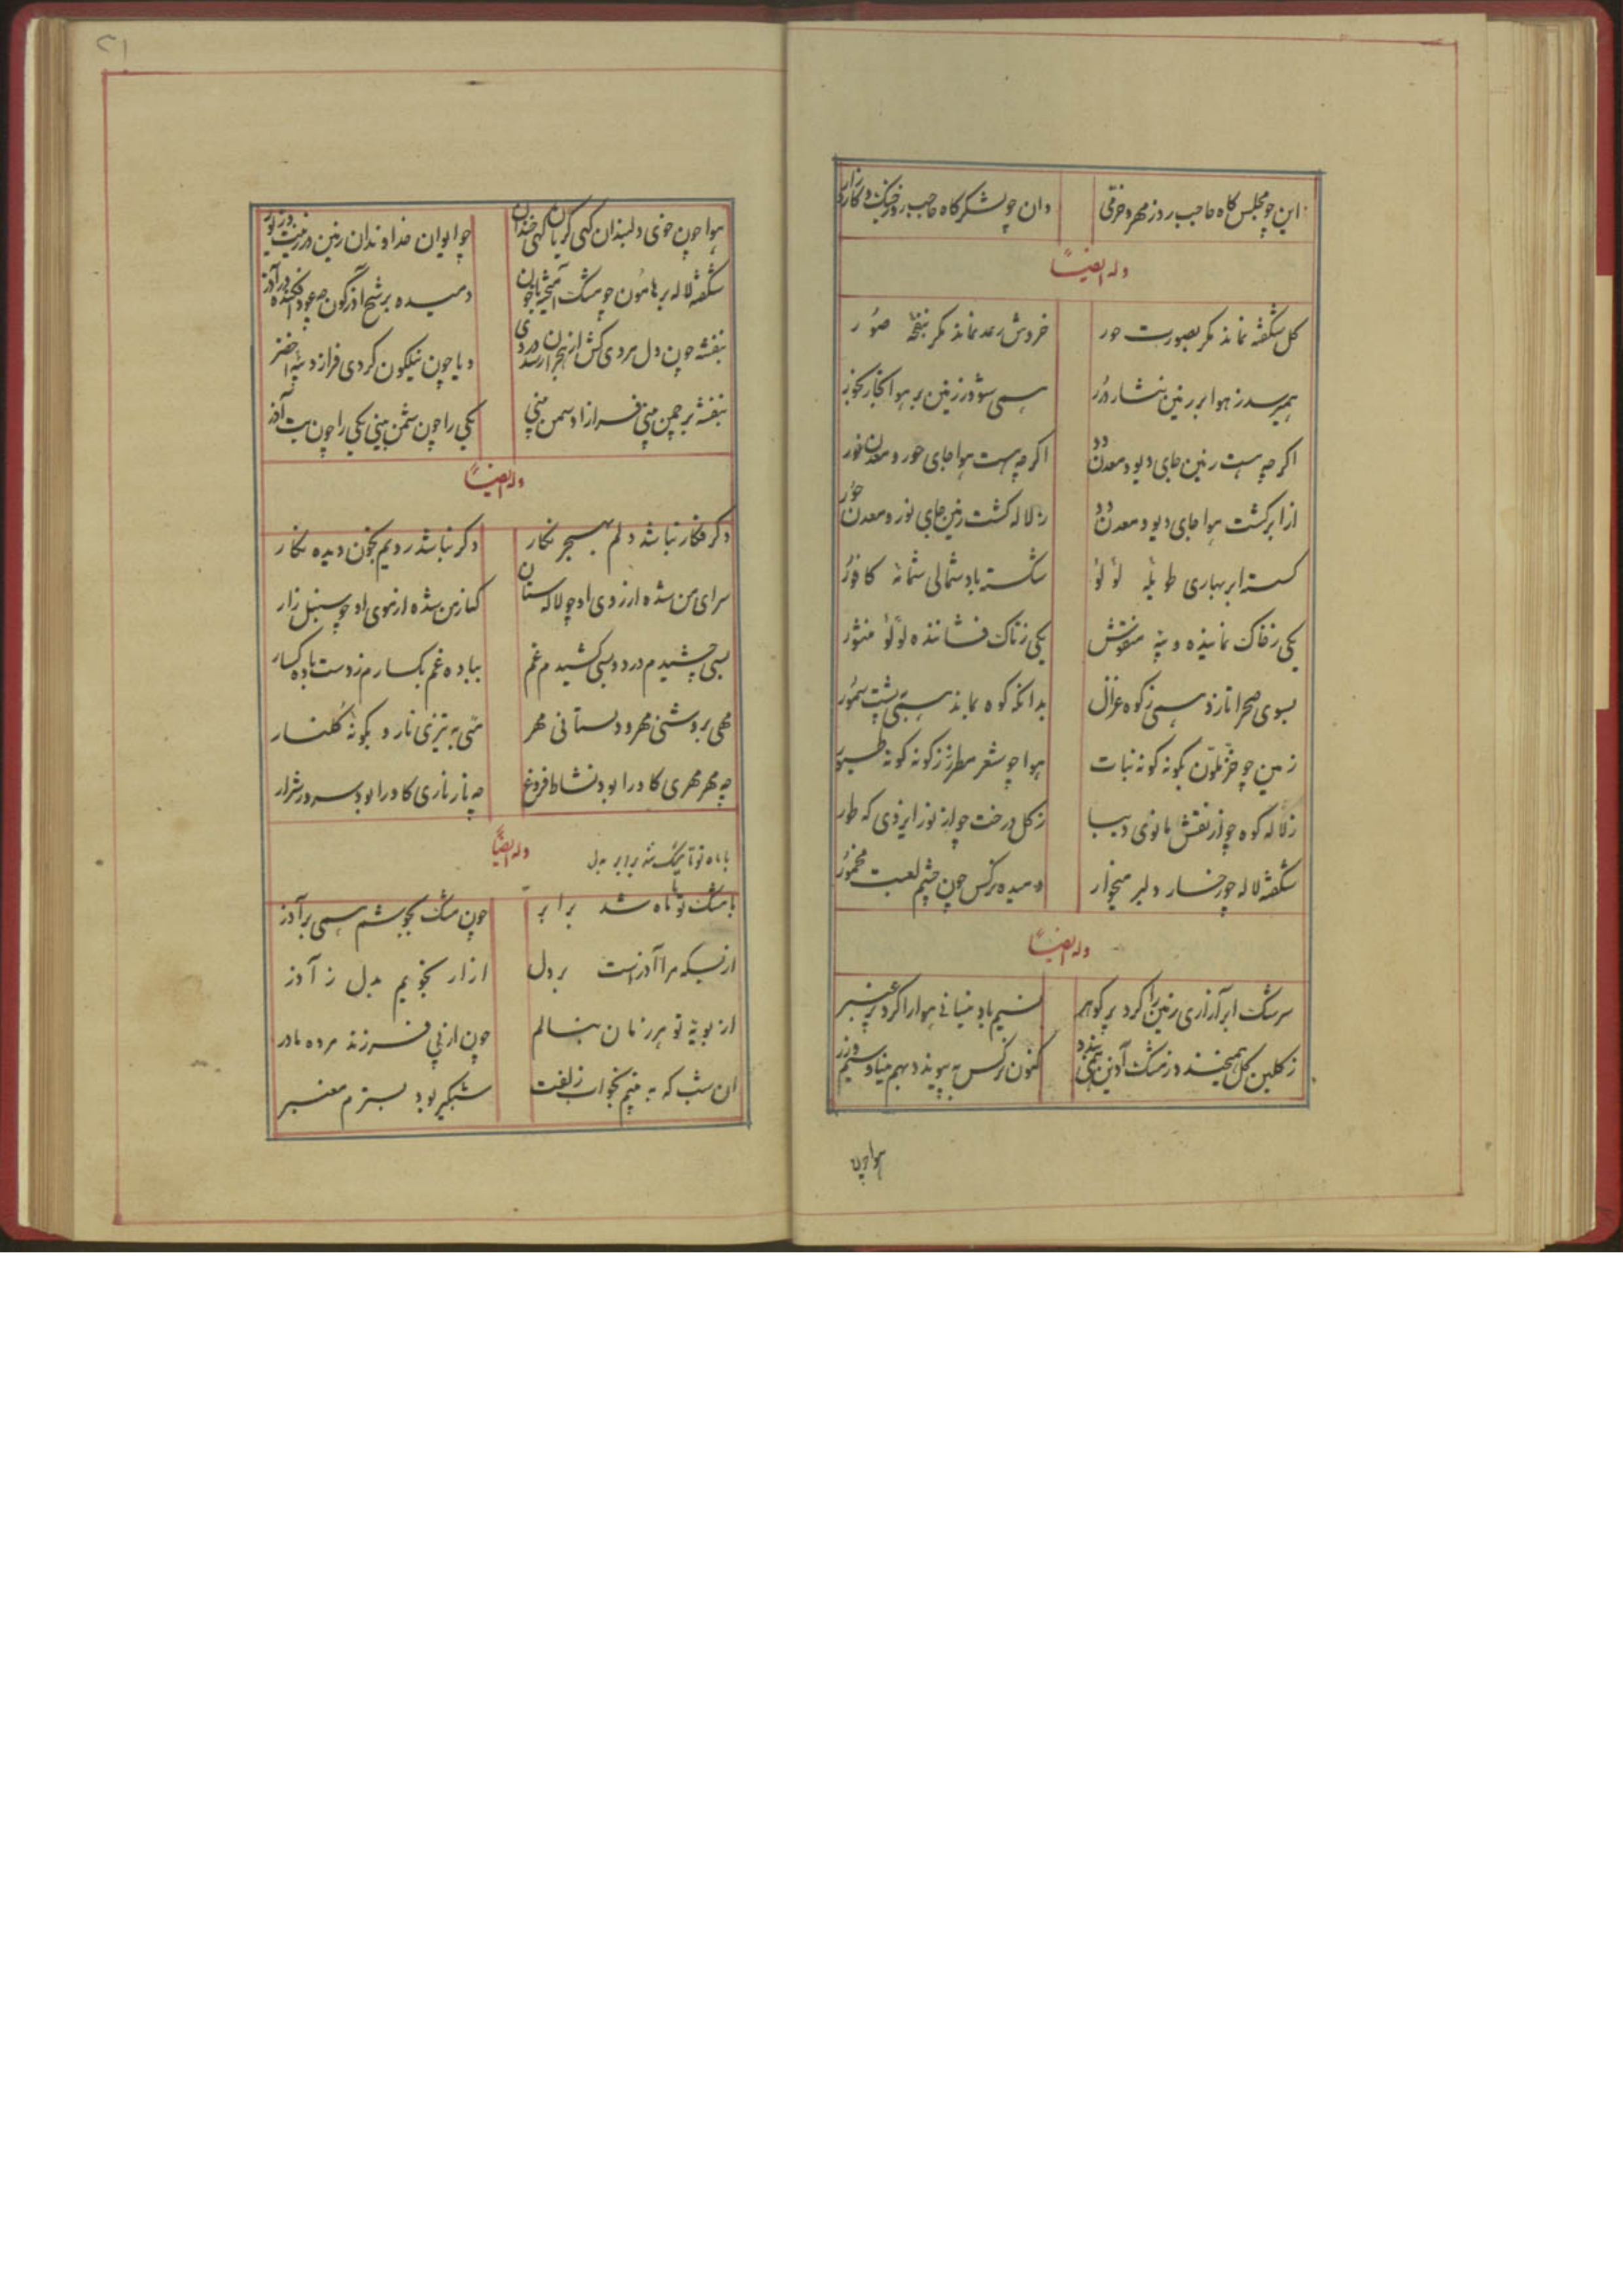 این چو مجلس گاه حاجب روز مهر و خرمی
وان چو لشکرگاه حاجب روز جنگ و کارزار
وله ایضاً
کل شکفته نماند مکر بصورت حور
خروش رعد نماند مکر بنفخهٔ صور
همی رسد ز هوا بر زمین نثار درر
همی شود ز زمین بر هوا بخار بخور
اکر چه هست زمین جای دیو و معدن دد
اکر چه هست هوا جای حور و معدن نور
از ابر کشت هوا جای دیو و معدن دد
ز لاله کشت زمین جای نور و معدن حور
کسسته ابر بهاری طویلهٔ لؤلؤ
شکسته باد شمالی شمامهٔ کافور
یکی ز خاک نماینده دیبهٔ منقوش
یکی ز تاک فشاننده لؤلؤ منثور
بسوی صحرا تازد همی ز کوه غزال
بدانکه کوه بماند همی بپشت سمور
زمین چو خز ملون بکونه کونه نبات
هوا چو شعر مطرز ز کونه کونه طیور
ز لاله کوه چو از نقش مانوی دیبا
ز کل درخت چو از نور ایزدی که طور
شکفته لاله چو رخسار دلبر میخوار
دمیده نرکس چون چشم لعبت مخمور
وله ایضاً
سرشک ابر آزاری زمین را کرد پر کوهر
نسیم باد نیسانی هوا را کرد پر عنبر
ز کلبن کل همی خندد ز مشک آذین همی بندد
کنون نرکس به پیوندد بهم مینا و سیم و زر
هوا چون
۲۱
هوا چون خوی دلبندان کهی کریان کهی خندان
چو ایوان خداوندان زمین در زینت و زیور
شکفته لاله بر هامون چو مشک آمیخته با خون
دمیده بر شخ آذرکون چو عود افکنده در آذر
بنفشه چون دل مردی کش از هجران رسد دردی
و یا چون نیلکون کردی فراز دیبهٔ اخضر
بنفشه بر چمن بینی فراز او سمن بینی
یکی را چون شمن بینی یکی را چون بت آذر
وله ایضاً
دکر فکار نباشد دلم بهجر نکار
دکر نباشد رویم بخون دیده نکار
سرای من شده از روی او چو لالستان
کنار من شده از موی او چو سنبل زار
بسی چشیدم درد و بسی کشیدم غم
بباده غم بکسارم ز دست باده کسار
مهی بروشنی مهر و دلستانی مهر
میی به تیزی نار و بکونهٔ کلنار
چه مهر مهری کاو را بود نشاط فروغ
چه نار ناری کاو را بود سرور شرار
وله ایضاً
با ماه تو تا نیک شد برابر بدل
با مشک تو تا ماه شد برابر
چون مشک بجوشم همی بر آذر
از بسکه مرا آذر است بر دل
آزار بجویم بدل ز آذر
از بویهٔ تو هر زمان بنالم
چون از پی فرزند مرده مادر
آن شب که به بینم بخواب زلفت
شبکیر بود بسترم معنبر